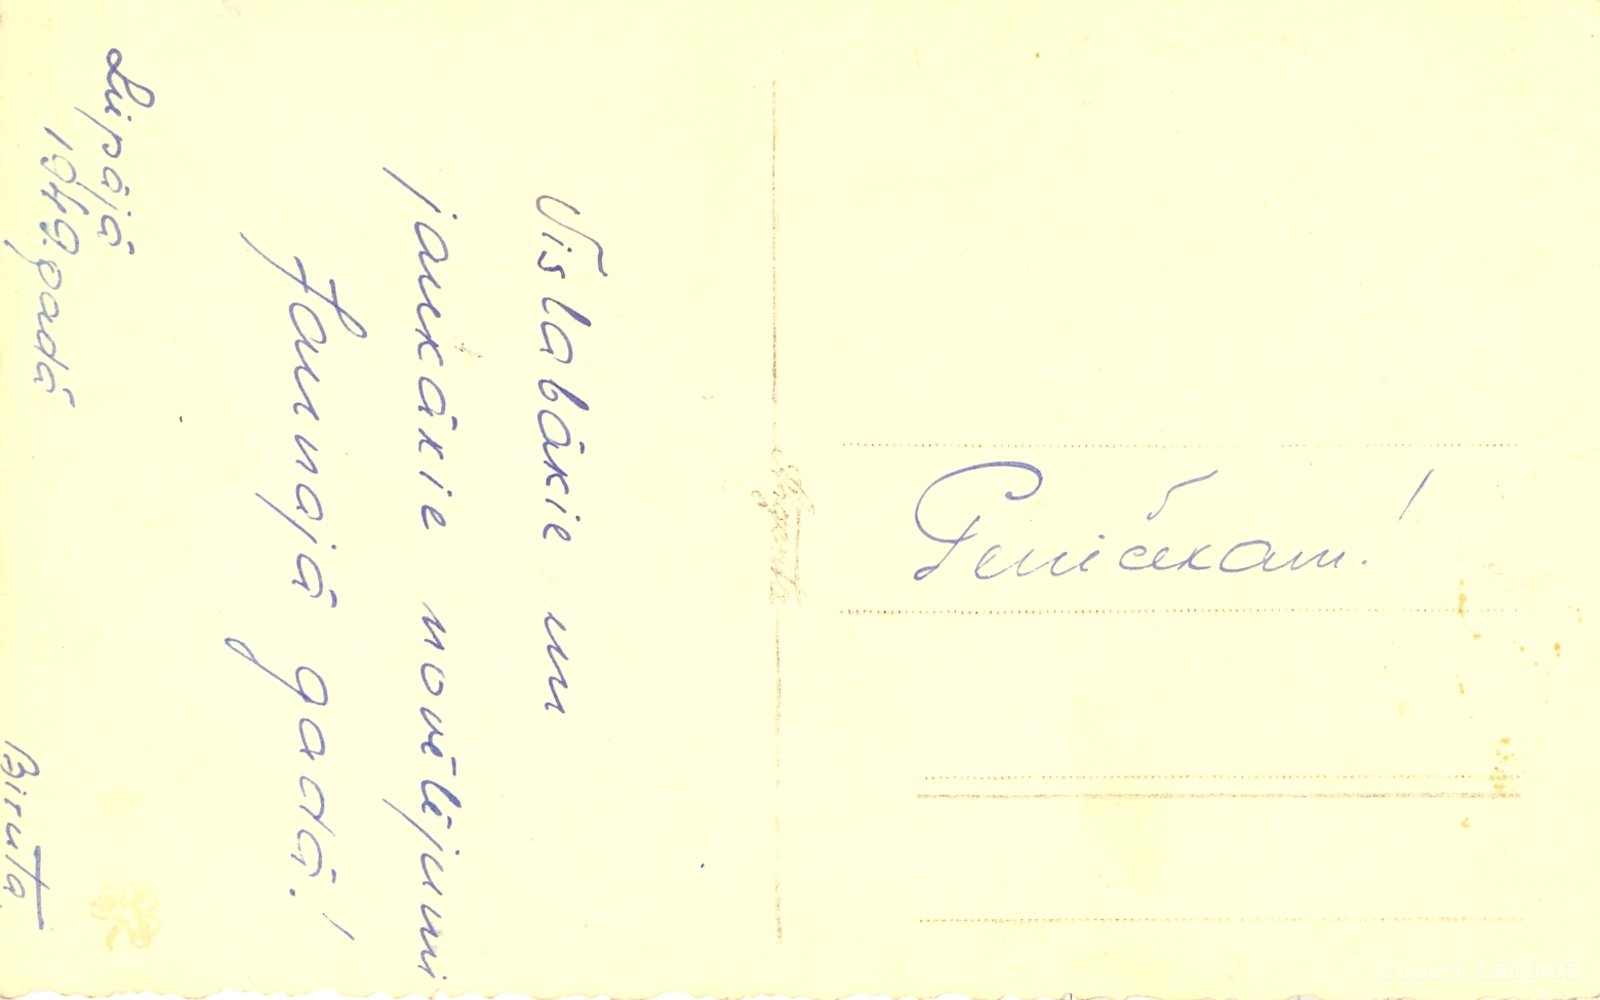 Vislabākie un
jaukākie novēlējumi
Jaunajā gadā!
Liepājā
1949. gadā
Biruta.